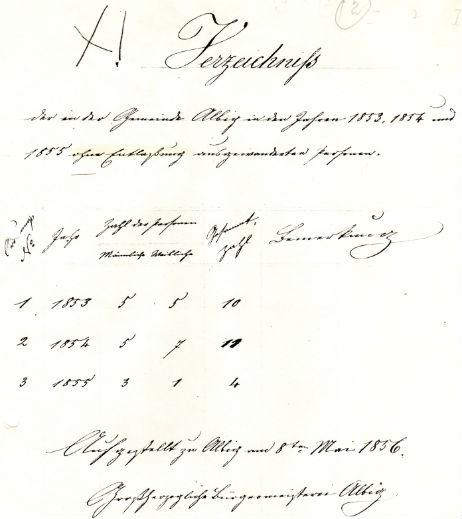 X!
(2)
Verzeichniß
der in der Gemeinde Albig in den Jahren 1853, 1854 und
1855 ohne Entlaßung ausgewanderten Personen.
Jahr Zahl der Personen Gesammt-
Männliche Weibliche zahl Bemerkung
1 1853 5 5 10
2 1854 5 7
3 1855 3 1 4
Aufgestellt zu Albig am 8ten Mai 1856.
Großherzogliche Bürgermeisterei Albig